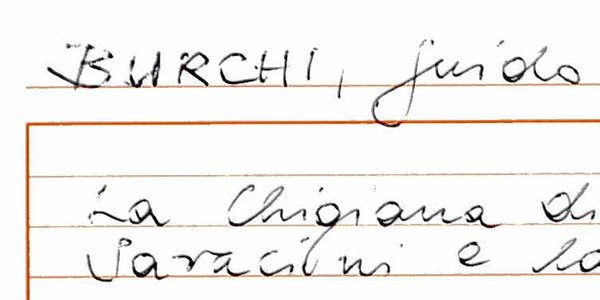 BURCHI, Guido
La Chigiana di
Saracini e la